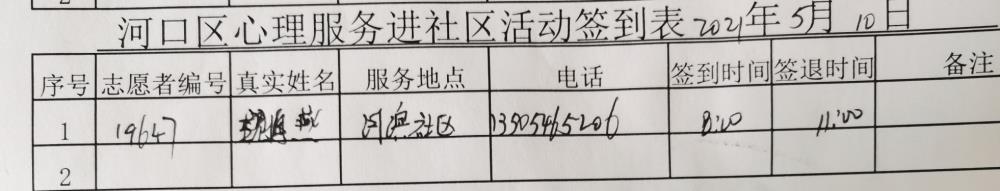 河口区心理服务进社区活动签到表 2021年5月10日
序号 志愿者编号 真实姓名 服务地点 电话 签到时间 签退时间 备注
1 19647 河滨社区 13505465206 8:00 11:00
2